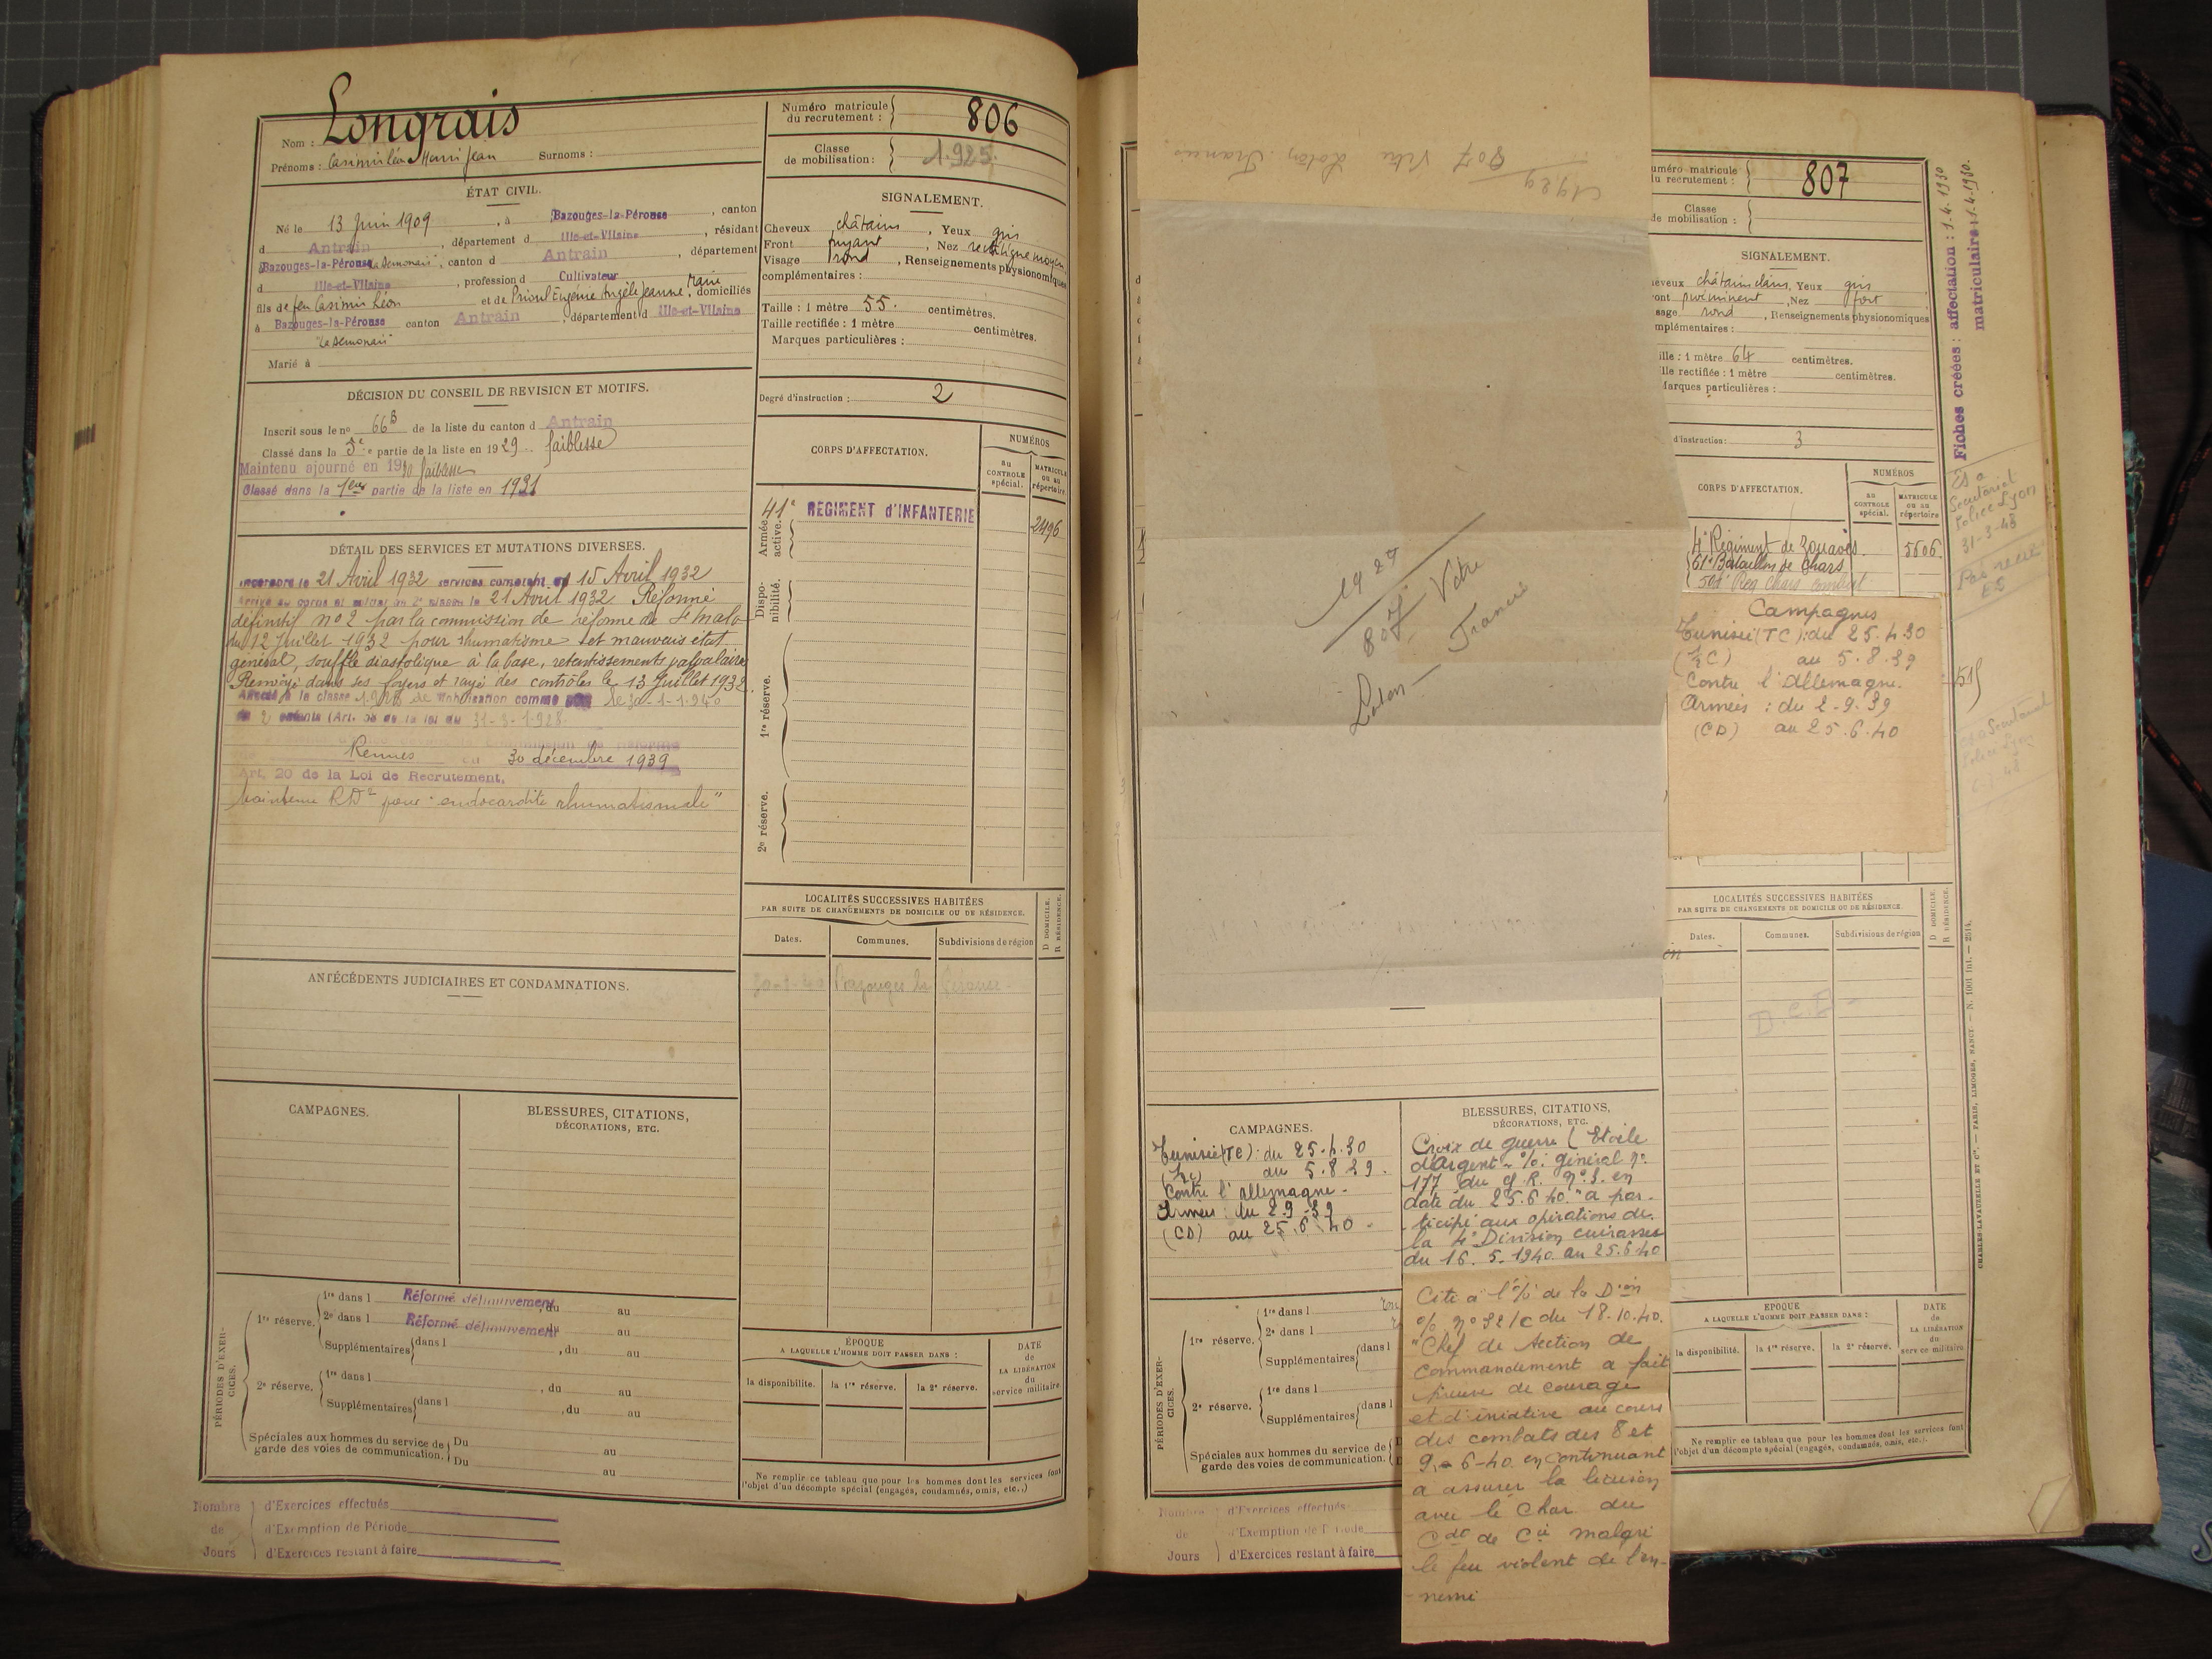 Longrais
Nom :
Prénoms : Casimir Léon Henri Jean Surnoms :
ÉTAT CIVIL.
Né le 13 Juin 1909, à Bazouges-la-Pérouse, canton
d Antrain, département d Ille-et-Vilaine, résidant
à Bazouges-la-Pérouse, canton d Antrain, département
d Ille-et-Vilaine, profession d Cultivateur
fils de feu Casimir Léon et de Prioul Eugénie Angèle Jeanne Marie, domiciliés
à Bazouges-la-Pérouse canton Antrain, département d Ille-et-Vilaine
Marié à
DÉCISION DU CONSEIL DE REVISION ET MOTIFS.
Inscrit sous le no 66B de la liste du canton d Antrain
Classé dans la 5e partie de la liste en 1929. faiblesse
Maintenu ajourné en 1930 faiblesse
Classé dans la 1ere partie de la liste en 1931
DÉTAIL DES SERVICES ET MUTATIONS DIVERSES.
Incorporé le 21 Avril 1932 services comptant du 15 Avril 1932
Arrivé au corps et soldat de 2e classe le 21 Avril 1932 Réformé
définitif no 2 par la commission de réforme de St Malo
du 12 Juillet 1932 pour rhumatisme et mauvais état
général, souffle diastolique à la base, retentissements
Renvoyé dans ses foyers et rayé des contrôles le 13 Juillet 1932.
à la classe de mobilisation comme père le 30-1-1940
de 2 enfants (Art. 58 de la loi du 31-3-1928.
Rennes du 30 décembre 1939
Art. 20 de la Loi de Recrutement.
Maintenu RD2 pour "endocardite rhumatismale"
ANTÉCÉDENTS JUDICIAIRES ET CONDAMNATIONS.
CAMPAGNES.
BLESSURES, CITATIONS,
DÉCORATIONS, ETC.
PÉRIODES D'EXERCICES.
1re réserve. 1re dans l Réformé définitivement, du au
2e dans l Réformé définitivement du au
Supplémentaires dans l , du au
2e réserve. 1re dans l , du au
Supplémentaires dans l , du au
Spéciales aux hommes du service de Du au
garde des voies de communication. Du au
Nombre d'Exercices effectués
de d'Exemption de Période
Jours d'Exercices restant à faire
Numéro matricule
du recrutement : 806
Classe
de mobilisation : 1.925.
SIGNALEMENT.
Cheveux châtains, Yeux gris
Front fuyant, Nez rectiligne moyen
Visage rond, Renseignements physionomiques
complémentaires :
Taille : 1 mètre 55. centimètres.
Taille rectifiée : 1 mètre centimètres.
Marques particulières :
Degré d'instruction : 2
CORPS D'AFFECTATION.
NUMÉROS
au CONTROLE spécial.
MATRICULE ou au répertoire
Armée active.
41e REGIMENT d'INFANTERIE 2496
Disponibilité.
1re réserve.
2e réserve.
LOCALITÉS SUCCESSIVES HABITÉES
PAR SUITE DE CHANGEMENTS DE DOMICILE OU DE RÉSIDENCE.
D DOMICILE.
R RÉSIDENCE.
Dates. Communes. Subdivisions de région
Bazouges la Pérouse
ÉPOQUE
A LAQUELLE L'HOMME DOIT PASSER DANS :
DATE
de
LA LIBÉRATION
du
service militaire
la disponibilité. la 1re réserve. la 2e réserve.
Ne remplir ce tableau que pour les hommes dont les services font
l'objet d'un décompte spécial (engagés, condamnés, omis, etc.,)
1929
807 Vitré Loton Francis
1929
807 Vitré
Loton Francis
CAMPAGNES.
Tunisie (TC) : du 25-4-30
(1/2C) au 5.8.39.
Contre l'Allemagne.
Armées : du 2.9.39
(CD) au 25.6.40.
BLESSURES, CITATIONS,
DÉCORATIONS, ETC.
Croix de guerre (Etoile
d'Argent. % général no
177 du G.Q. no 1. en
date du 25.6.40. "a par-
ticipé aux opérations de
la 4e Division cuirassée
du 16.5.1940. au 25.6.40
Cité à l'% de la Dion
% no 32/c du 18.10.40.
"Chef de Section de
Commandement a fait
preuve de courage
et d'iniative au cours
des combats des 8 et
9-6-40 en continuant
a assurer la liaison
avec le Char du
Cdt de Cie malgré
le feu violent de l'en-
nemi
PÉRIODES D'EXERCICES.
1re réserve. 1re dans l
2e dans l
Supplémentaires dans l
2e réserve. 1re dans l
Supplémentaires dans l
Spéciales aux hommes du service de
garde des voies de communication.
Nombre d'Exercices effectués
de d'Exemption de Période
Jours d'Exercices restant à faire
Numéro matricule
du recrutement : 807
Classe
de mobilisation :
SIGNALEMENT.
châtain clair, Yeux gris
proéminent, Nez fort
rond, Renseignements physionomiques
1 mètre 64 centimètres.
rectifiée : 1 mètre centimètres.
Marques particulières :
d'instruction : 3
CORPS D'AFFECTATION.
NUMÉROS
au CONTROLE spécial.
MATRICULE ou au répertoire
4e Régiment de Zouaves. 5606
61e Bataillon de Chars
Campagnes
Tunisie (TC) : du 25.4.30
(1/2C) au 5.8.39
Contre l'Allemagne.
Armées : du 2.9.39
(CD) au 25.6.40
LOCALITÉS SUCCESSIVES HABITÉES
PAR SUITE DE CHANGEMENTS DE DOMICILE OU DE RÉSIDENCE.
D DOMICILE.
R RÉSIDENCE.
Dates. Communes. Subdivisions de région
EPOQUE
A LAQUELLE L'HOMME DOIT PASSER DANS :
DATE
de
LA LIBÉRATION
du
service militaire
la disponibilité. la 1re réserve. la 2e réserve.
Ne remplir ce tableau que pour les hommes dont les services font
l'objet d'un décompte spécial (engagés, condamnés, omis, etc.).
Fiches créées : affectation : 1.4.1930
matriculaire : 1.4.1930.
Secrétariat
Police Lyon
31-3-43
CHARLES-LAVAUZELLE ET Cie. — PARIS, LIMOGES, NANCY — N. 1001 Int. — 2514.